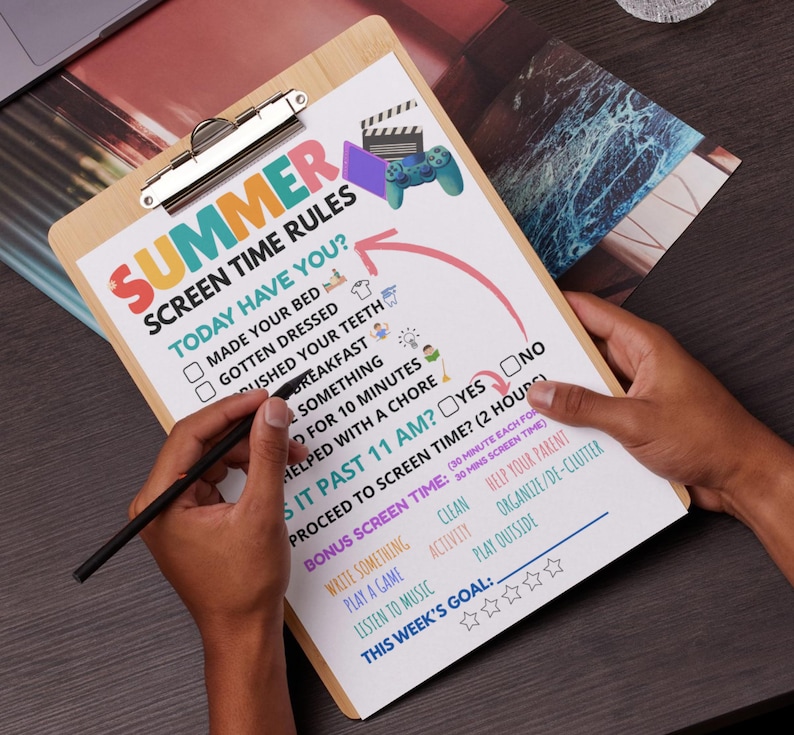 SUMMER
SCREEN TIME RULES
TODAY HAVE YOU?
MADE YOUR BED
GOTTEN DRESSED
YOUR TEETH
BREAKFAST
SOMETHING
FOR 10 MINUTES
HELPED WITH A CHORE
IT PAST 11 AM? YES NO
PROCEED TO SCREEN TIME? (2 HOURS)
BONUS SCREEN TIME: (30 MINUTE EACH FOR
30 MINS SCREEN TIME)
WRITE SOMETHING CLEAN HELP YOUR PARENT
PLAY A GAME ACTIVITY ORGANIZE/DE-CLUTTER
LISTEN TO MUSIC PLAY OUTSIDE
THIS WEEK'S GOAL: